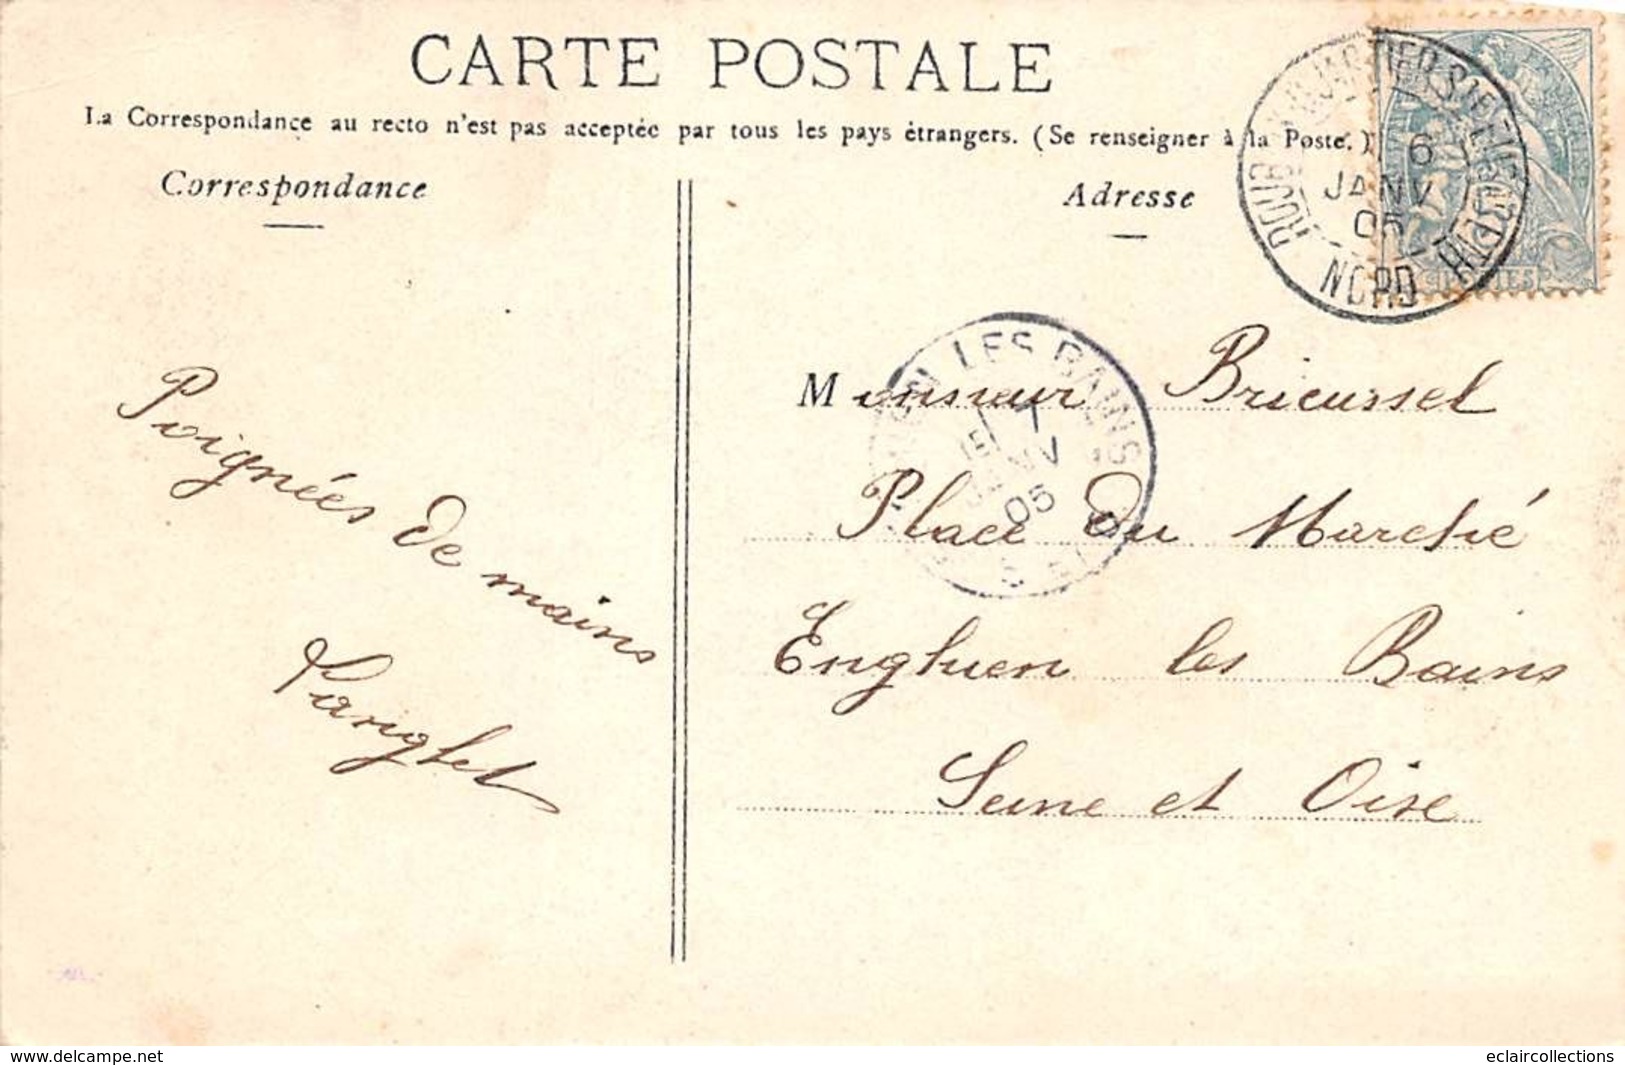 CARTE POSTALE
La Correspondance au recto n'est pas acceptée par tous les pays étrangers. (Se renseigner à la Poste.)
Correspondance
Adresse
6
JANV
05
NORD
LES BAINS
05
Monsieur Brieussel
Place du Marché
Enghien les Bains
Seine et Oise
Poignées de mains
Langlet
www.delcampe.net
eclaircollections